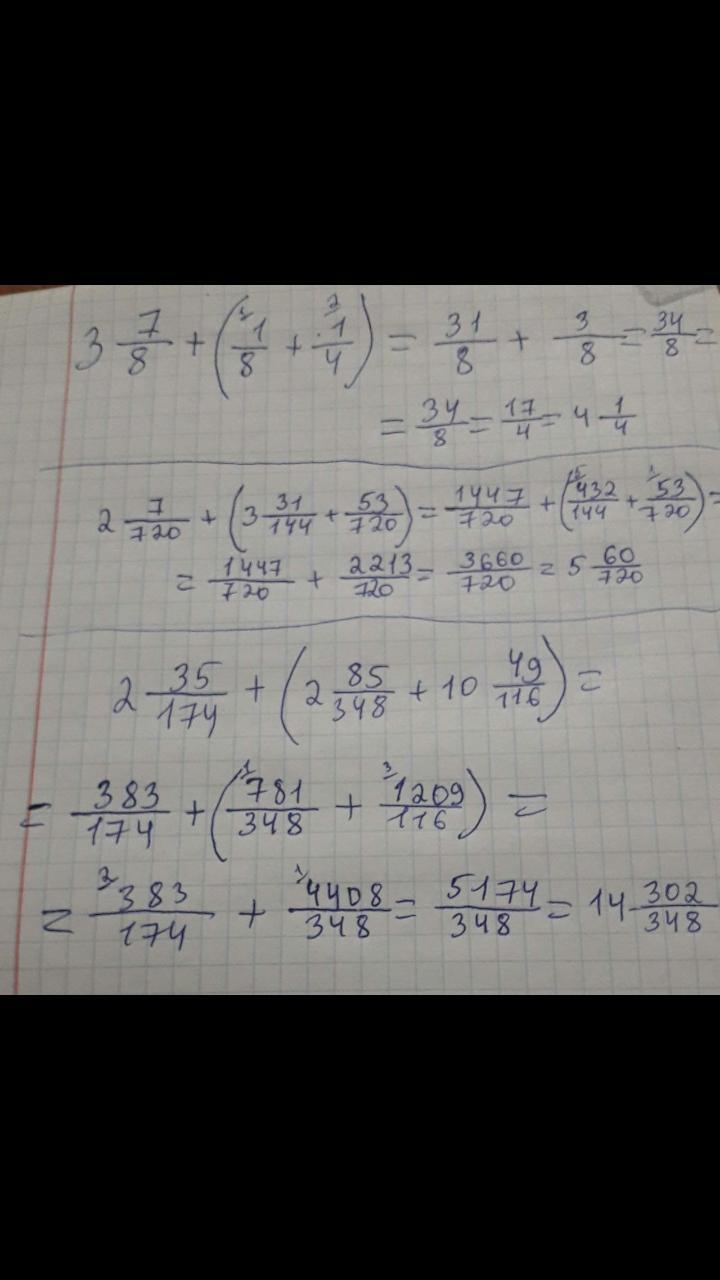 3 7/8 + (¹1/8 + ²1/4) = 31/8 + 3/8 = 34/8 =
= 34/8 = 17/4 = 4 1/4
2 7/720 + (3 31/144 + 53/720) = 1447/720 + (⁵432/144 + ¹53/720) =
= 1447/720 + 2213/720 = 3660/720 = 5 60/720
2 35/174 + (2 85/348 + 10 49/116) =
= 383/174 + (¹781/348 + ³1209/116) =
= ²383/174 + ¹4408/348 = 5174/348 = 14 302/348